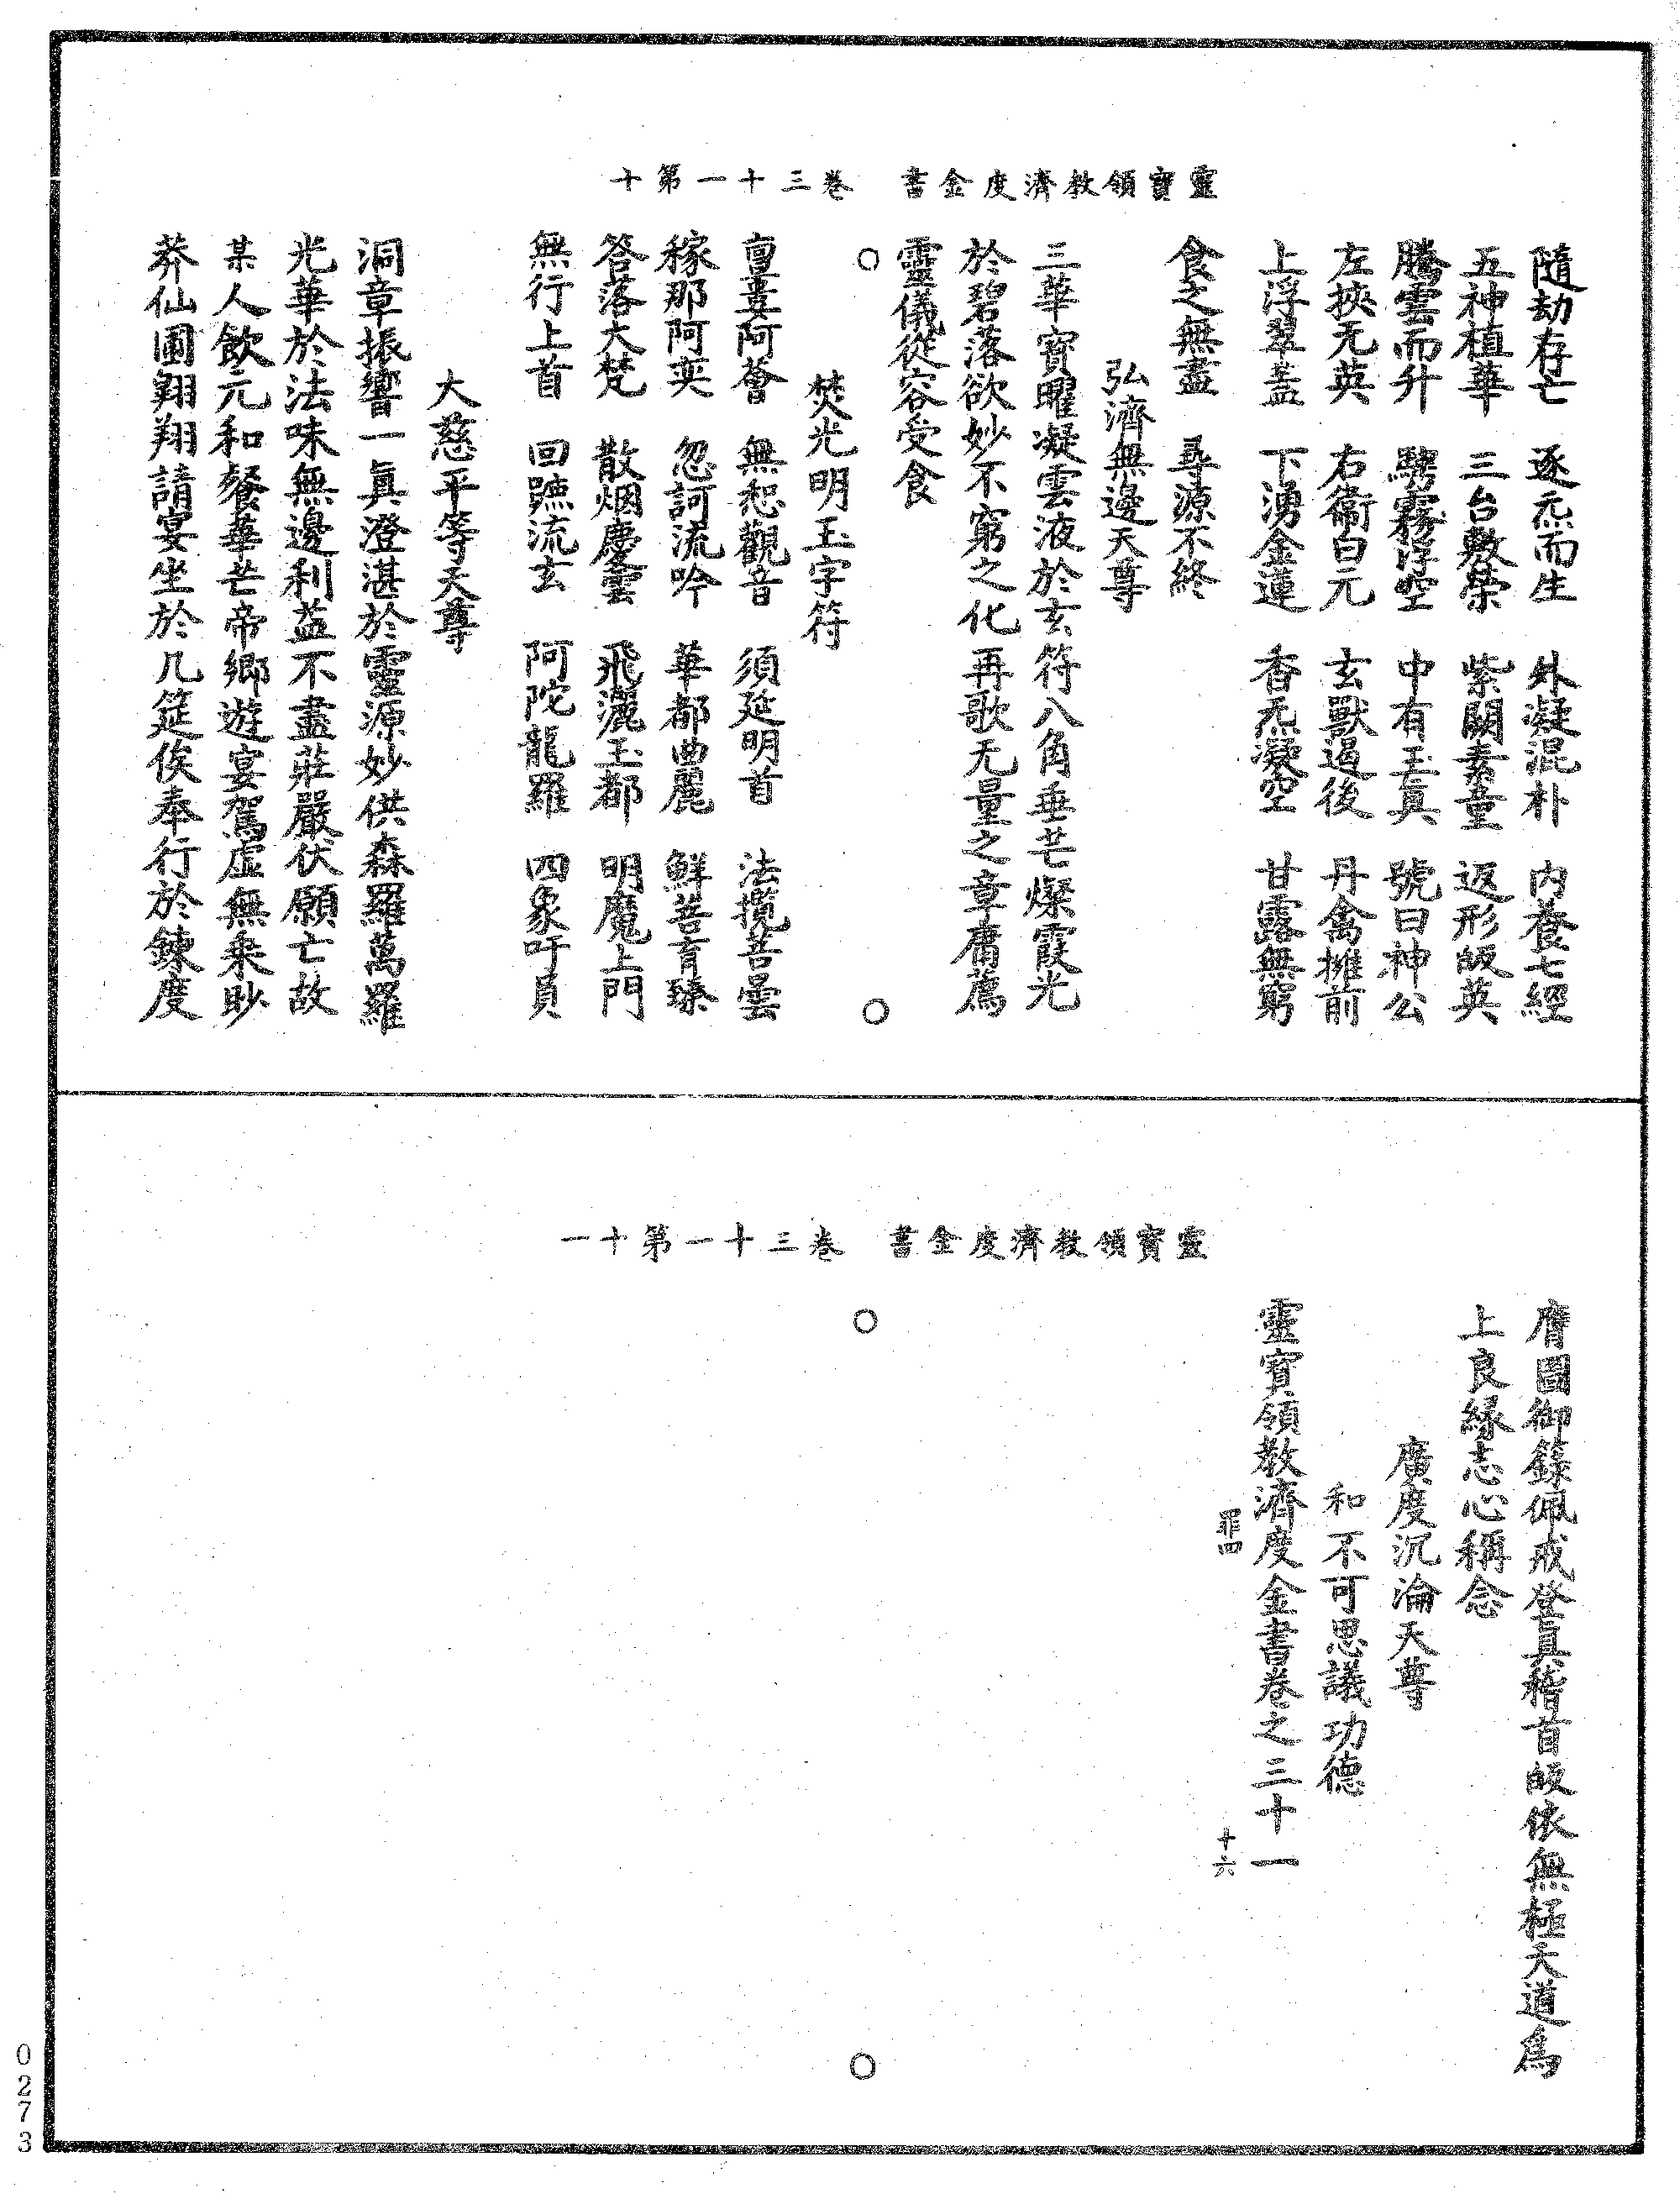 靈寶領教濟度金書　卷三十一第十
隨劫存亡　逐炁而生　外凝混朴　内養七經
五神植華　三台敷榮　紫闕素童　返形皈英
騰雲而升　驂霧浮空　中有玉眞　號曰神公
左挾无英　右衞白元　玄獸遏後　丹禽擁前
上浮翠蓋　下湧金蓮　香炁凝空　甘露無窮
食之無盡　尋源不終
弘濟無邊天尊
三華寶曜凝雲液於玄符八角垂芒燦霞光
於碧落欲妙不窮之化再歌无量之章庸薦
靈儀從容受食
焚光明玉字符
亶婁阿薈　無惒觀音　須延明首　法攬菩曇
稼那阿奕　忽訶流吟　華都曲麗　鮮菩育臻
答落大梵　散烟慶雲　飛灑玉都　明魔上門
無行上首　回蹠流玄　阿陀龍羅　四象吁員
大慈平等天尊
洞章振響一眞澄湛於靈源妙供森羅萬羅
光華於法味無邊利益不盡莊嚴伏願亡故
某人飲元和餐華芒帝鄉遊宴駕虛無乗眇
莽仙圃翺翔請宴坐於几筵俟奉行於鍊度
靈寶領教濟度金書　卷三十一第十一
膺圖御籙佩戒登眞稽首皈依無極大道爲
上良緣志心稱念
廣度沉淪天尊
和不可思議功德
靈寶領教濟度金書卷之三十一
罪四　十六
0273